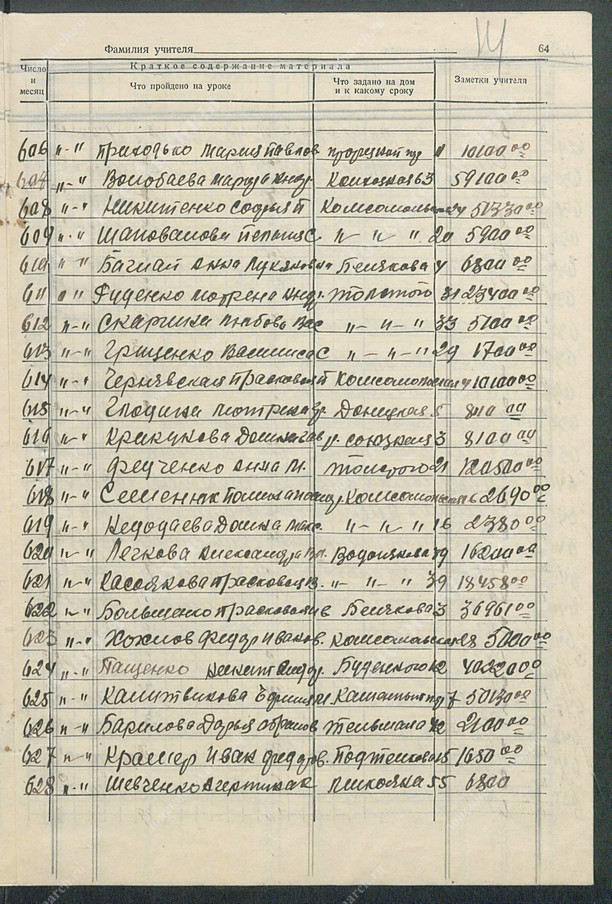 Фамилия учителя 64
Число и месяц Краткое содержание материала
Что пройдено на уроке Что задано на дом и к какому сроку Заметки учителя
606 "-" Приходько Мария Павлов 10100 00
607 "-" Волобаева 63 59100 00
608 "-" Никитенко Софья П Комсомольская 51330 00
609 "-" Шаповалова Пелагия С "-" "-" 20 5900 00
610 "-" Баглай Анна Лукянова Белякова 4 6800 00
611 "-" Руденко Мотрена Андр. Толстого 31 23400 00
612 "-" Скаргина Любовь Вас "-"-" 33 5100 00
613 "-" Грищенко Василиса С "-"-" 29 1700 00
614 "-" Чернявская Прасковья П Комсомольская 10100 00
615 "-" Глодина Мотрена Донецкая 5 810 00
616 "-" Крикукова Домна ул. Союзкая 3 8100 00
617 "-" Фещенко Анна М. Толстого 21 120500 00
618 "-" Семеняк Комсомольская 16 2690 00
619 "-" Недодаева Домна Макс. "-" "-" 16 2380 00
620 "-" Легкова Александра Вл. Водопянова 39 16200 00
621 "-" Касьянова Прасковья В. "-" "-" 39 18458 00
622 "-" Большенко Прасковья Белякова 3 36961 00
623 "-" Хохлов Федор Иванов. Комсомольская 28 5000 00
624 "-" Пащенко Никита Андр. Буденного 12 40320 00
625 "-" Калитвинова 7 50130 00
626 "-" Барилова Дарья Абрамов Тельмана 42 2100 00
627 "-" Крамер Иван Федоров. Подтелкова 15 1650 00
628 "-" Шевченко 55 6800